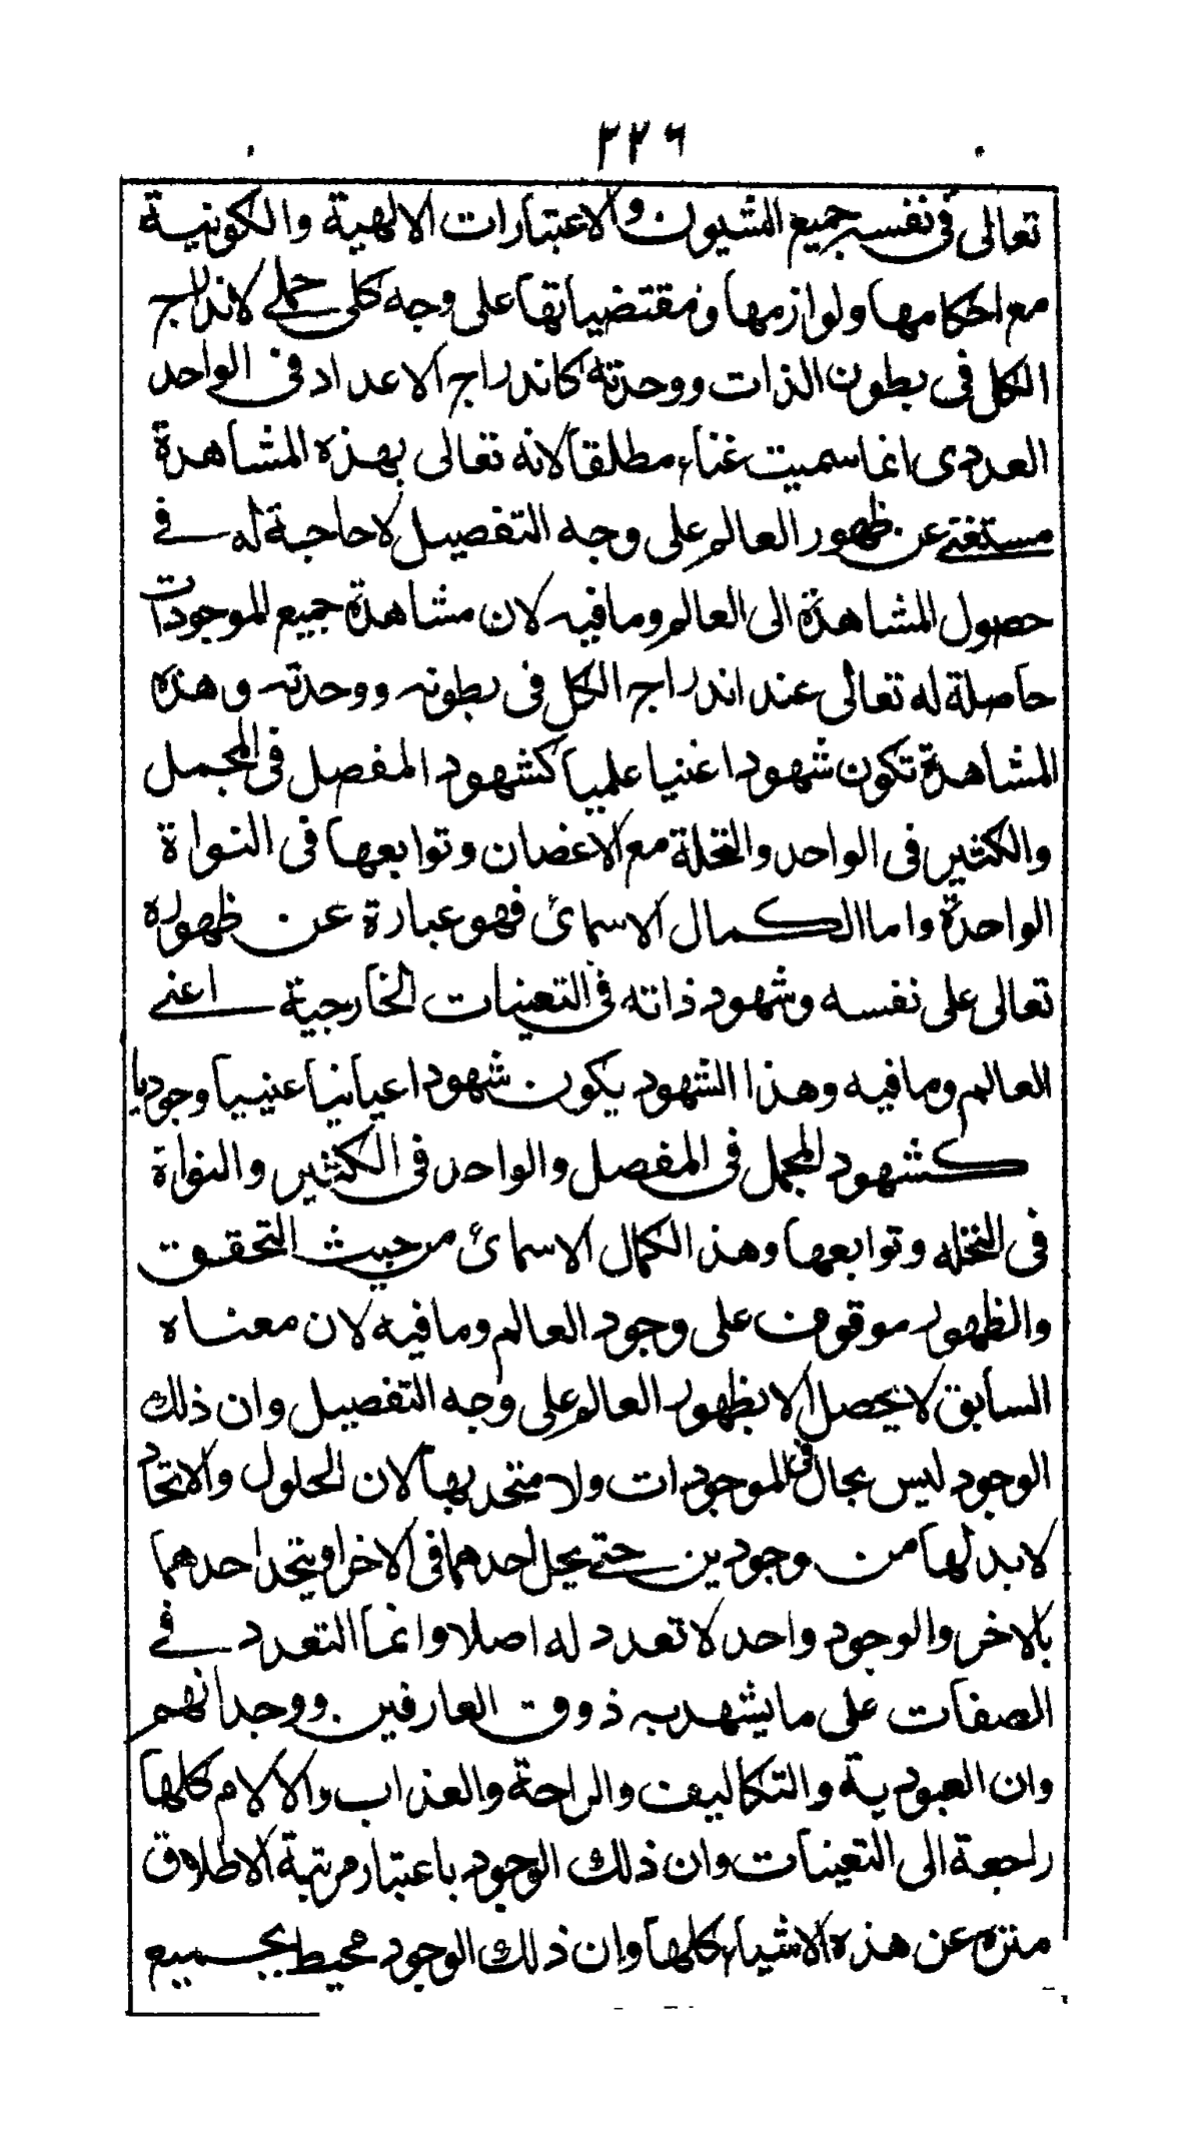 ٣٢٦
تعالى فى نفسه جميع الشيون والاعتبارات الالهية والكونية
مع احكامها ولوازمها ومقتضياتها على وجه كلى جملى لاندراج
الكل فى بطون الذات ووحدته كاندراج الاعداد فى الواحد
العددى انما سميت غناء مطلقا لانه تعالى بهذه المشاهدة
مستغنى عن ظهور العالم على وجه التفصيل لا حاجة له فى
حصول المشاهدة الى العالم وما فيه لان مشاهدة جميع الموجودات
حاصلة له تعالى عند اندراج الكل فى بطونه ووحدته وهذه
المشاهدة تكون شهودا غنيبا علميا كشهود المفصل فى المجمل
والكثير فى الواحد والنخلة مع الاغصان وتوابعها فى النواة
الواحدة واما الكمال الاسمائ فهو عبارة عن ظهوره
تعالى على نفسه وشهود ذاته فى التعينات الخارجية اعنى
العالم وما فيه وهذا الشهود يكون شهودا عيانيا عينيا وجوديا
كشهود المجمل فى المفصل والواحد فى الكثير والنواة
فى النخله وتوابعها وهذ الكمال الاسمائ من حيث التحقق
والظهور موقوف على وجود العالم وما فيه لان معناه
السابق لا يحصل الا بظهور العالم على وجه التفصيل وان ذلك
الوجود ليس بحال فى الموجودات ولا متحد بها لان الحلول والاتحاد
لا بد لها من وجودين حتى يحل احدهما فى الاخر او يتحد احدهما
بالاخر والوجود واحد لا تعدد له اصلا وانما التعدد فى
الصفات على ما يشهد به ذوق العارفين ووجدانهم
وان العبودية والتكاليف والراحة والعذاب والالام كلها
راجعة الى التعينات وان ذلك الوجود باعتبار مرتبة الاطلاق
منزه عن هذه الاشياء كلها وان ذلك الوجود محيط بجميع